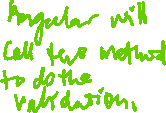 Angular will
call this method
to do the
validation.